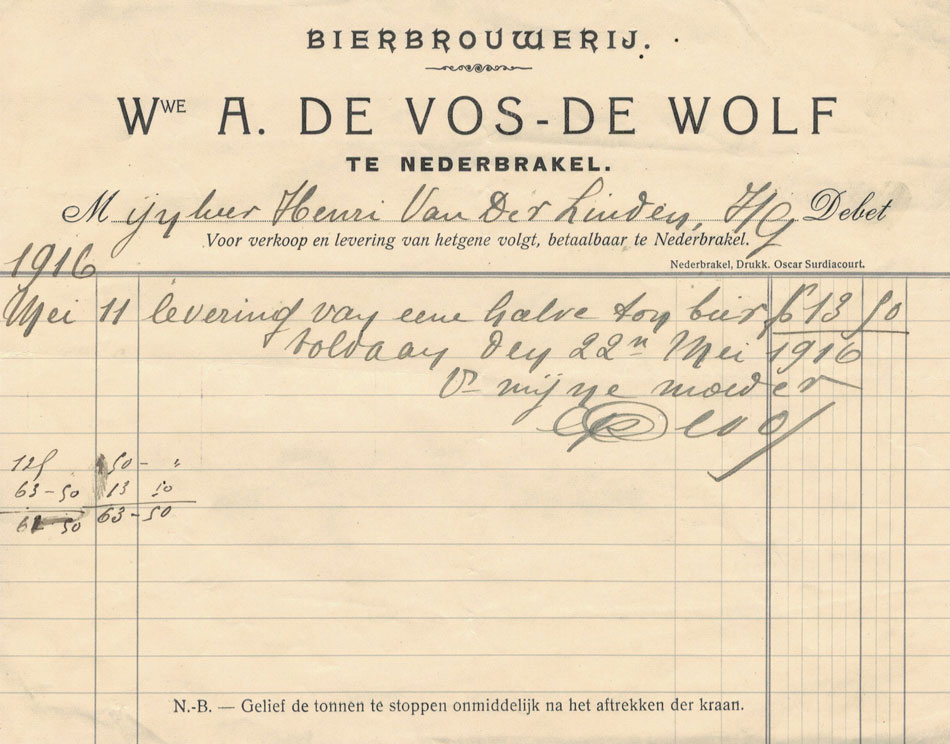 BIERBROUWERIJ.
WWE A. DE VOS-DE WOLF
TE NEDERBRAKEL.
Mijnheer Henri Van Der Linden, Debet
Voor verkoop en levering van hetgene volgt, betaalbaar te Nederbrakel.
Nederbrakel, Drukk. Oscar Surdiacourt.
1916
Mei 11 levering van eene halve ton bier 13 50
voldaan den 22n Mei 1916
Vr mijne moeder
125 50 - "
63-50 13 50
61 50 63-50
N.-B. — Gelief de tonnen te stoppen onmiddelijk na het aftrekken der kraan.